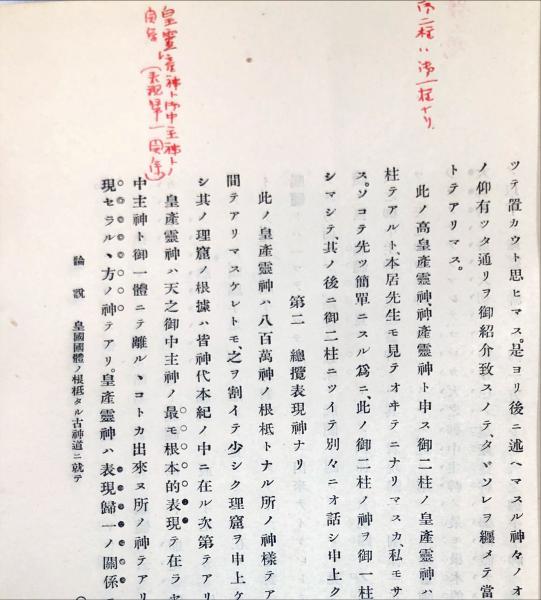 御二柱ハ御一柱ナリ
皇霊ハ産神ト御中主神トノ
関係(表現帰一関係)
ツテ置カウト思ヒマス。是ヨリ後ニ述ヘマスル神々ノオ
ノ仰有ツタ通リヲ御紹介致スノテ、タヾソレヲ纒メテ當
トテアリマス。
此ノ高皇產靈神神產靈神ト申ス御二柱ノ皇產靈神ハ
柱テアルト、本居先生モ見テオヰテニナリマスカ私モサ
ス。ソコテ先ツ簡單ニスル爲ニ、此ノ御二柱ノ神ヲ御一柱
シマシテ、其ノ後ニ御二柱ニツイテ別々ニオ話シ申上ク
第二 總攬表現神ナリ
此ノ皇產靈神ハ八百萬神ノ根柢トナル所ノ神樣テア
間テアリマスケレトモ、之ヲ割イテ少シク理窟ヲ申上ケ
シ其ノ理窟ノ根據ハ皆神代本紀ノ中ニ在ル次第テアリ
皇產靈神ハ天之御中主神ノ最モ根本的表現テ在ラセ
中主神ト御一體ニテ離ルヽコトカ出來ヌ所ノ神テアリ
現セラルヽ方ノ神テアリ。皇產靈神ハ表現歸一ノ關係
論說 皇國國體ノ根柢タル古神道ニ就テ